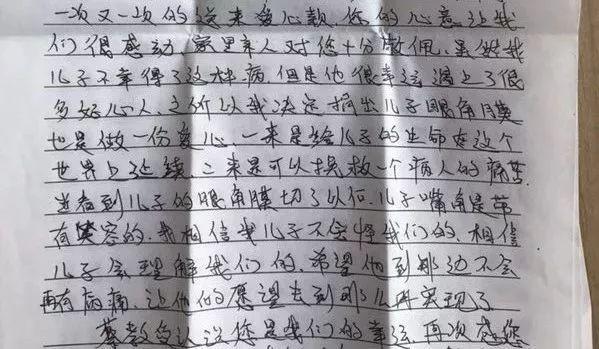 一次又一次的送来爱心款,您的心意让我
们很感动,家里亲人对您十分敬佩,虽然我
儿子不幸得了这种病,但是他很幸运遇上了很
多好心人,之所以我决定捐出儿子眼角膜
也是做一份爱心,一来是给儿子的生命在这个
世界上延续,二来是可以拯救一个病人的痛苦
当看到儿子的眼角膜切了以后,儿子嘴角是带
有笑容的,我相信我儿子不会怪我们的,相信
儿子会理解我们的,希望他到那边不会
再有病痛,让他的愿望去到那儿再实现了
蔡教授认识您是我们的幸运,再次感您